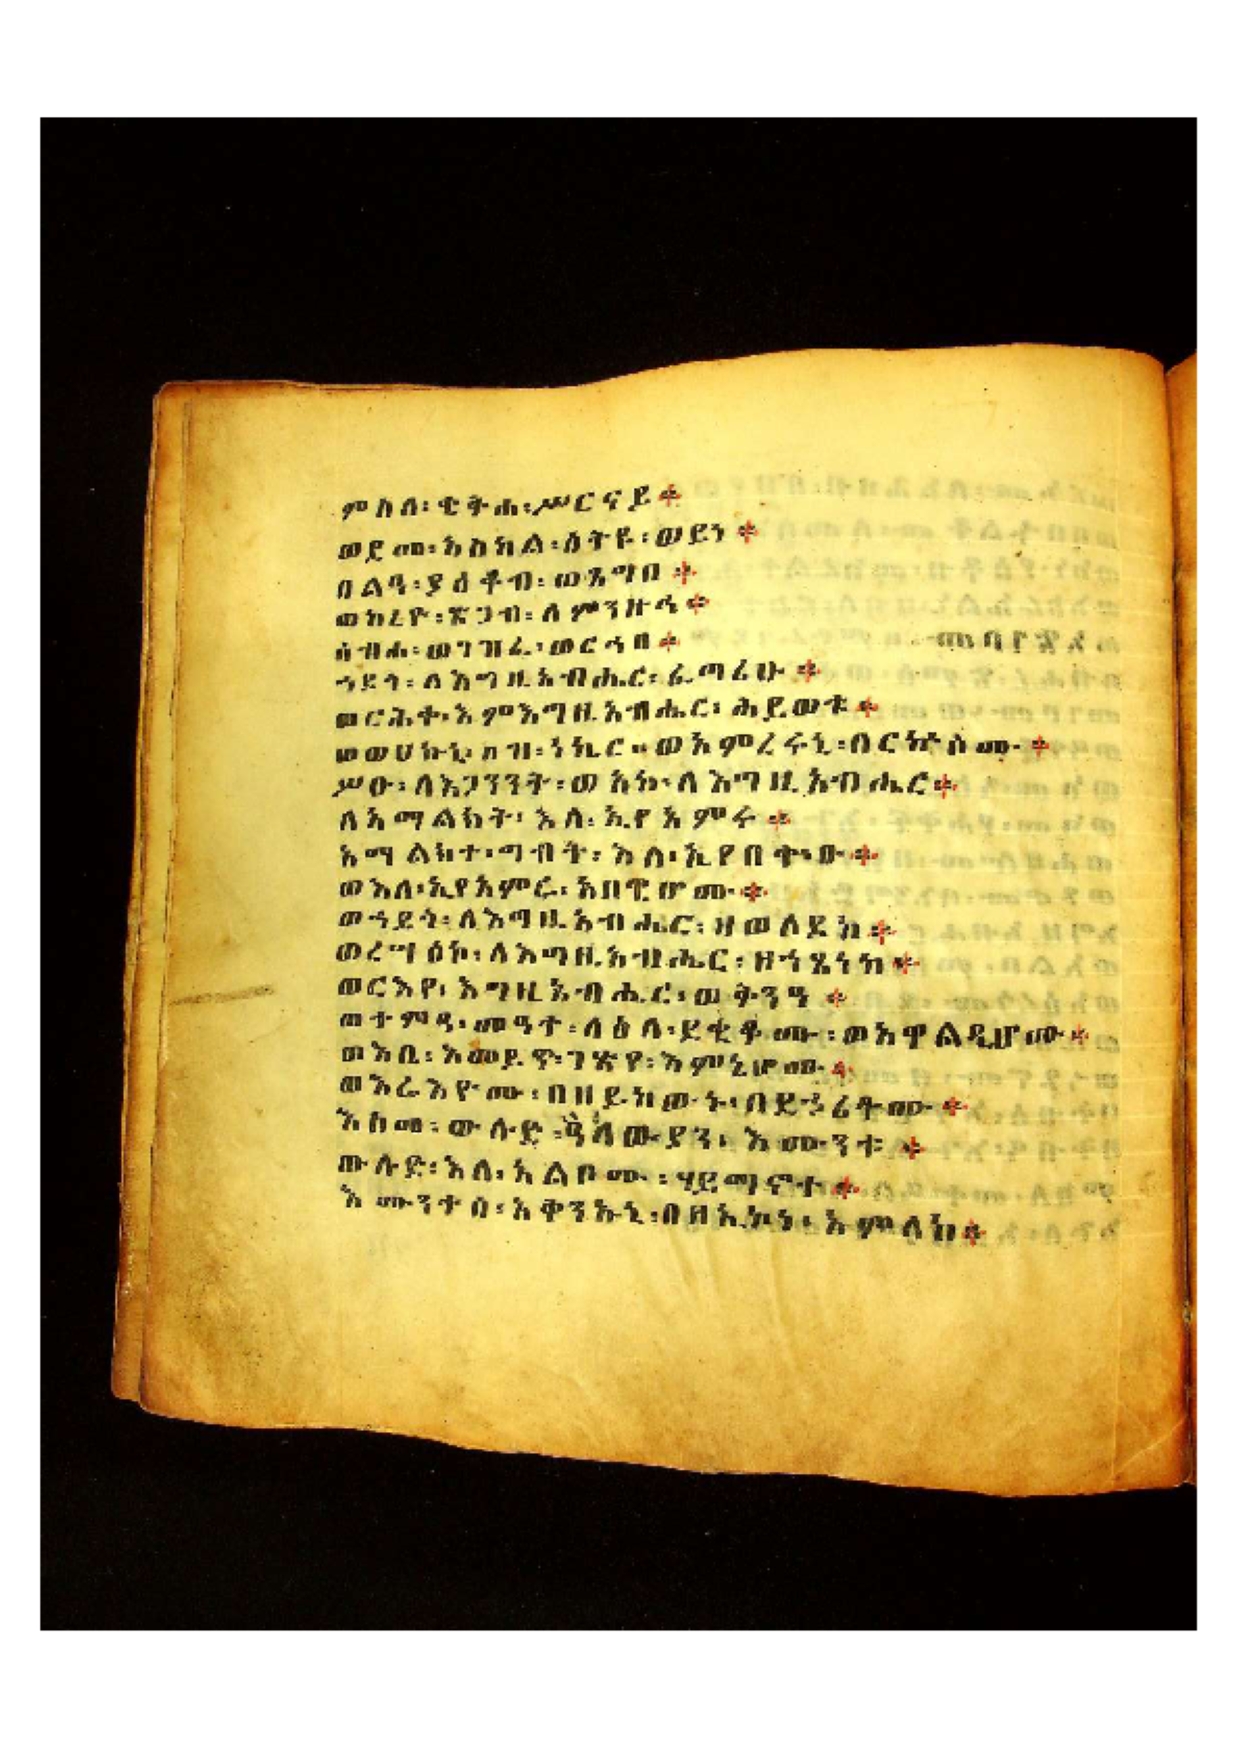 ምስለ፡ ቄትሐ፡ ሥርናይ፨
ወደመ፡ አስካል፡ ሰትዩ፡ ወይነ፨
በልዓ፡ ያዕቆብ፡ ወጸግበ፨
ወከረዮ፡ ጽጋብ፡ ለምንዙዓ፨
ሰብሐ፡ ወገዝፈ፡ ወርኅበ፨
ኀደጎ፡ ለእግዚአብሔር፡ ፈጣሪሁ፨
ወርሕቀ፡ እምእግዚአብሔር፡ ሕይወቱ፨
ወወሀኩኒ፡ በዝ፡ ነኪር። ወአምረሩኒ፡ በርኵሰሙ፨
ሥዑ፡ ለአጋንንት፡ ወአኮ፡ ለእግዚአብሔር፨
ለአማልክት፡ እለ፡ ኢየአምሩ፨
አማልክተ፡ ግብት፡ እለ፡ ኢየበቍዑ፨
ወእለ፡ ኢየአምሩ፡ አበዊሆሙ፨
ወኀደጎ፡ ለእግዚአብሔር፡ ዘወለደከ፨
ወረሣዕኮ፡ ለእግዚአብሔር፡ ዘኀፄነከ፨
ወርእየ፡ እግዚአብሔር፡ ወቅንዓ፨
ወተምዓ፡ መዓተ፡ ላዕለ፡ ደቂቆሙ፡ ወአዋልዲሆሙ፨
ወእቤ፡ እመይጥ፡ ገጽየ፡ እምኒሆሙ፨
ወእሬእዮሙ፡ በዘይከውኑ፡ በደኃሪቶሙ፨
እስመ፡ ውሉድ፡ ዓላውያን፡ እሙንቱ፨
ውሉድ፡ እለ፡ አልቦሙ፡ ሃይማኖተ፨
እሙንተሰ፡ አቅንኡኒ፡ በዘኢኮነ፡ አምላክ፨